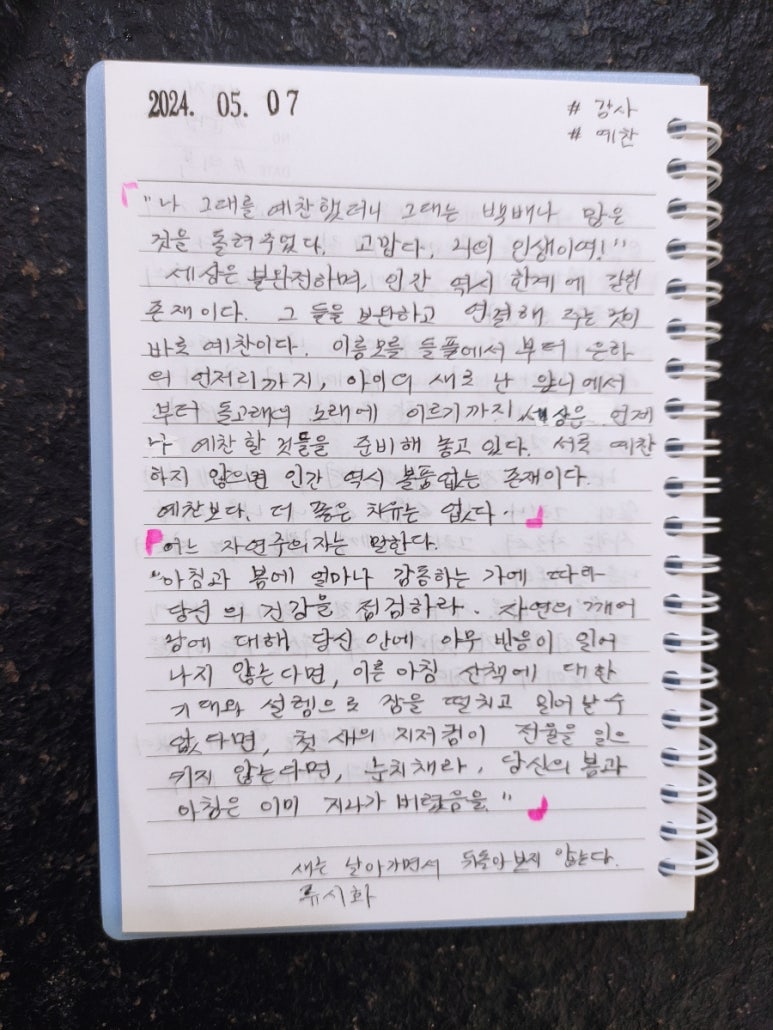 2024. 05. 07
# 감사
# 예찬
"나 그대를 예찬했더니 그대는 백배나 많은
것을 돌려주었다. 고맙다, 나의 인생이여!"
세상은 불완전하며, 인간 역시 한계에 갇힌
존재이다. 그 틈을 보완하고 연결해 주는 것이
바로 예찬이다. 이름모를 들풀에서 부터 은하
의 언저리까지, 아이의 새로 난 앞니에서
부터 돌고래의 노래에 이르기까지 세상은 언제
나 예찬할 것들을 준비해 놓고 있다. 서로 예찬
하지 않으면 인간 역시 볼품없는 존재이다.
예찬보다. 더 좋은 치유는 없다.
어느 자연주의자는 말한다.
"아침과 봄에 얼마나 감동하는 가에 따라
당신의 건강을 점검하라. 자연의 깨어
남에 대해 당신 안에 아무 반응이 일어
나지 않는다면, 이른 아침 산책에 대한
기대와 설렘으로 잠을 떨치고 일어날 수
없다면, 첫 새의 지저귐이 전율을 일으
키지 않는다면, 눈치채라. 당신의 봄과
아침은 이미 지나가 버렸음을."
새는 날아가면서 뒤돌아보지 않는다.
류시화